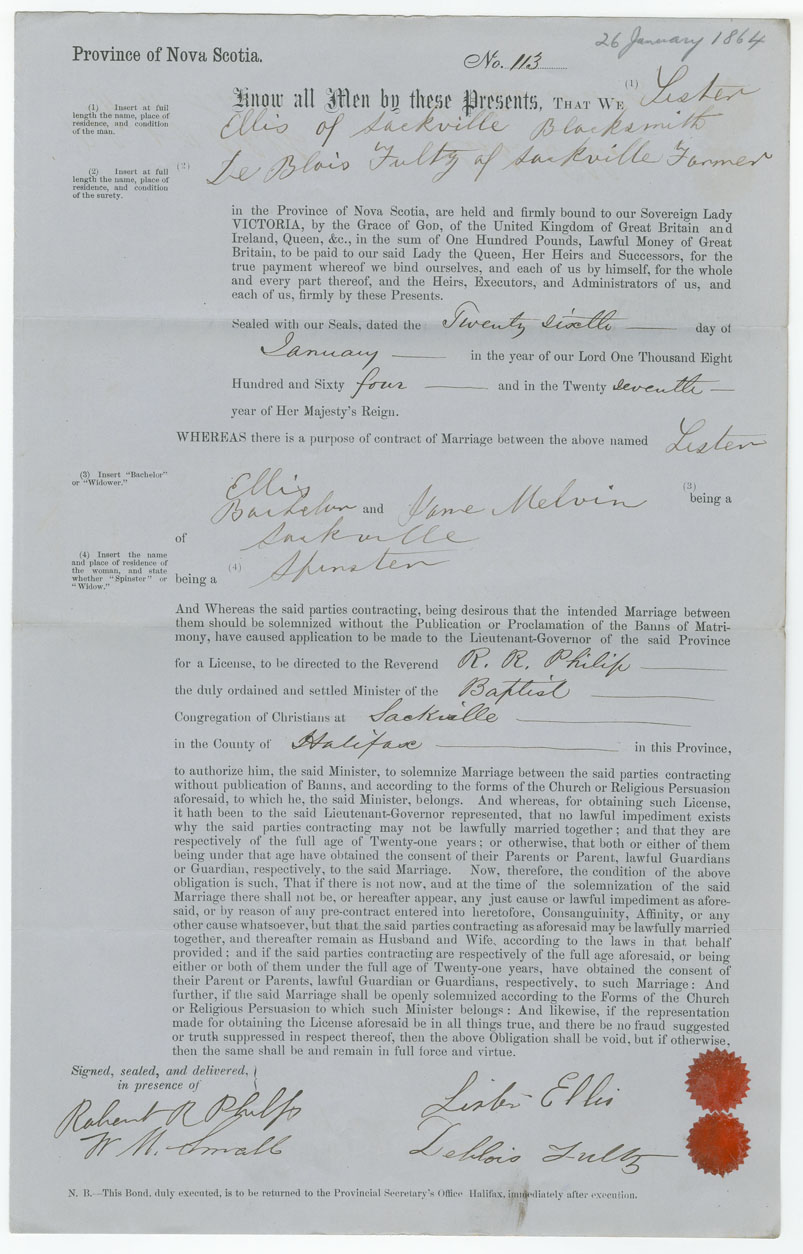 26 January 1864
Province of Nova Scotia.
No. 113
(1) Insert at full
length the name, place of
residence, and condition
of the man.
Know all Men by these Presents, THAT WE (1) Lister
Ellis of Sackville Blacksmith
(2) Insert at full
length the name, place of
residence, and condition
of the surety.
(2) De Blois Fultz of Sackville Farmer
in the Province of Nova Scotia, are held and firmly bound to our Sovereign Lady
VICTORIA, by the Grace of GOD, of the United Kingdom of Great Britain and
Ireland, Queen, &c., in the sum of One Hundred Pounds, Lawful Money of Great
Britain, to be paid to our said Lady the Queen, Her Heirs and Successors, for the
true payment whereof we bind ourselves, and each of us by himself, for the whole
and every part thereof, and the Heirs, Executors, and Administrators of us, and
each of us, firmly by these Presents.
Sealed with our Seals, dated the Twenty sixth day of
January in the year of our Lord One Thousand Eight
Hundred and Sixty four and in the Twenty seventh
year of Her Majesty's Reign.
WHEREAS there is a purpose of contract of Marriage between the above named Lister
(3) Insert "Bachelor"
or "Widower."
Ellis (3) being a
Bachelor and Jane Melvin
of Sackville
(4) Insert the name
and place of residence of
the woman, and state
whether "Spinster" or
"Widow."
being a (4) Spinster
And Whereas the said parties contracting, being desirous that the intended Marriage between
them should be solemnized without the Publication or Proclamation of the Banns of Matri-
mony, have caused application to be made to the Lieutenant-Governor of the said Province
for a License, to be directed to the Reverend R. R. Philip
the duly ordained and settled Minister of the Baptist
Congregation of Christians at Sackville
in the County of Halifax in this Province,
to authorize him, the said Minister, to solemnize Marriage between the said parties contracting
without publication of Banns, and according to the forms of the Church or Religious Persuasion
aforesaid, to which he, the said Minister, belongs. And whereas, for obtaining such License,
it hath been to the said Lieutenant-Governor represented, that no lawful impediment exists
why the said parties contracting may not be lawfully married together; and that they are
respectively of the full age of Twenty-one years; or otherwise, that both or either of them
being under that age have obtained the consent of their Parents or Parent, lawful Guardians
or Guardian, respectively, to the said Marriage. Now, therefore, the condition of the above
obligation is such, That if there is not now, and at the time of the solemnization of the said
Marriage there shall not be, or hereafter appear, any just cause or lawful impediment as afore-
said, or by reason of any pre-contract entered into heretofore, Consanguinity, Affinity, or any
other cause whatsoever, but that the said parties contracting as aforesaid may be lawfully married
together, and thereafter remain as Husband and Wife, according to the laws in that behalf
provided; and if the said parties contracting are respectively of the full age aforesaid, or being
either or both of them under the full age of Twenty-one years, have obtained the consent of
their Parent or Parents, lawful Guardian or Guardians, respectively, to such Marriage: And
further, if the said Marriage shall be openly solemnized according to the Forms of the Church
or Religious Persuasion to which such Minister belongs: And likewise, if the representation
made for obtaining the License aforesaid be in all things true, and there be no fraud suggested
or truth suppressed in respect thereof, then the above Obligation shall be void, but if otherwise,
then the same shall be and remain in full force and virtue.
Signed, sealed, and delivered,
in presence of
Robert R Philp
W. M. Small
Lister Ellis
Deblois Fultz
N. B.—This Bond, duly executed, is to be returned to the Provincial Secretary's Office Halifax, immediately after execution.